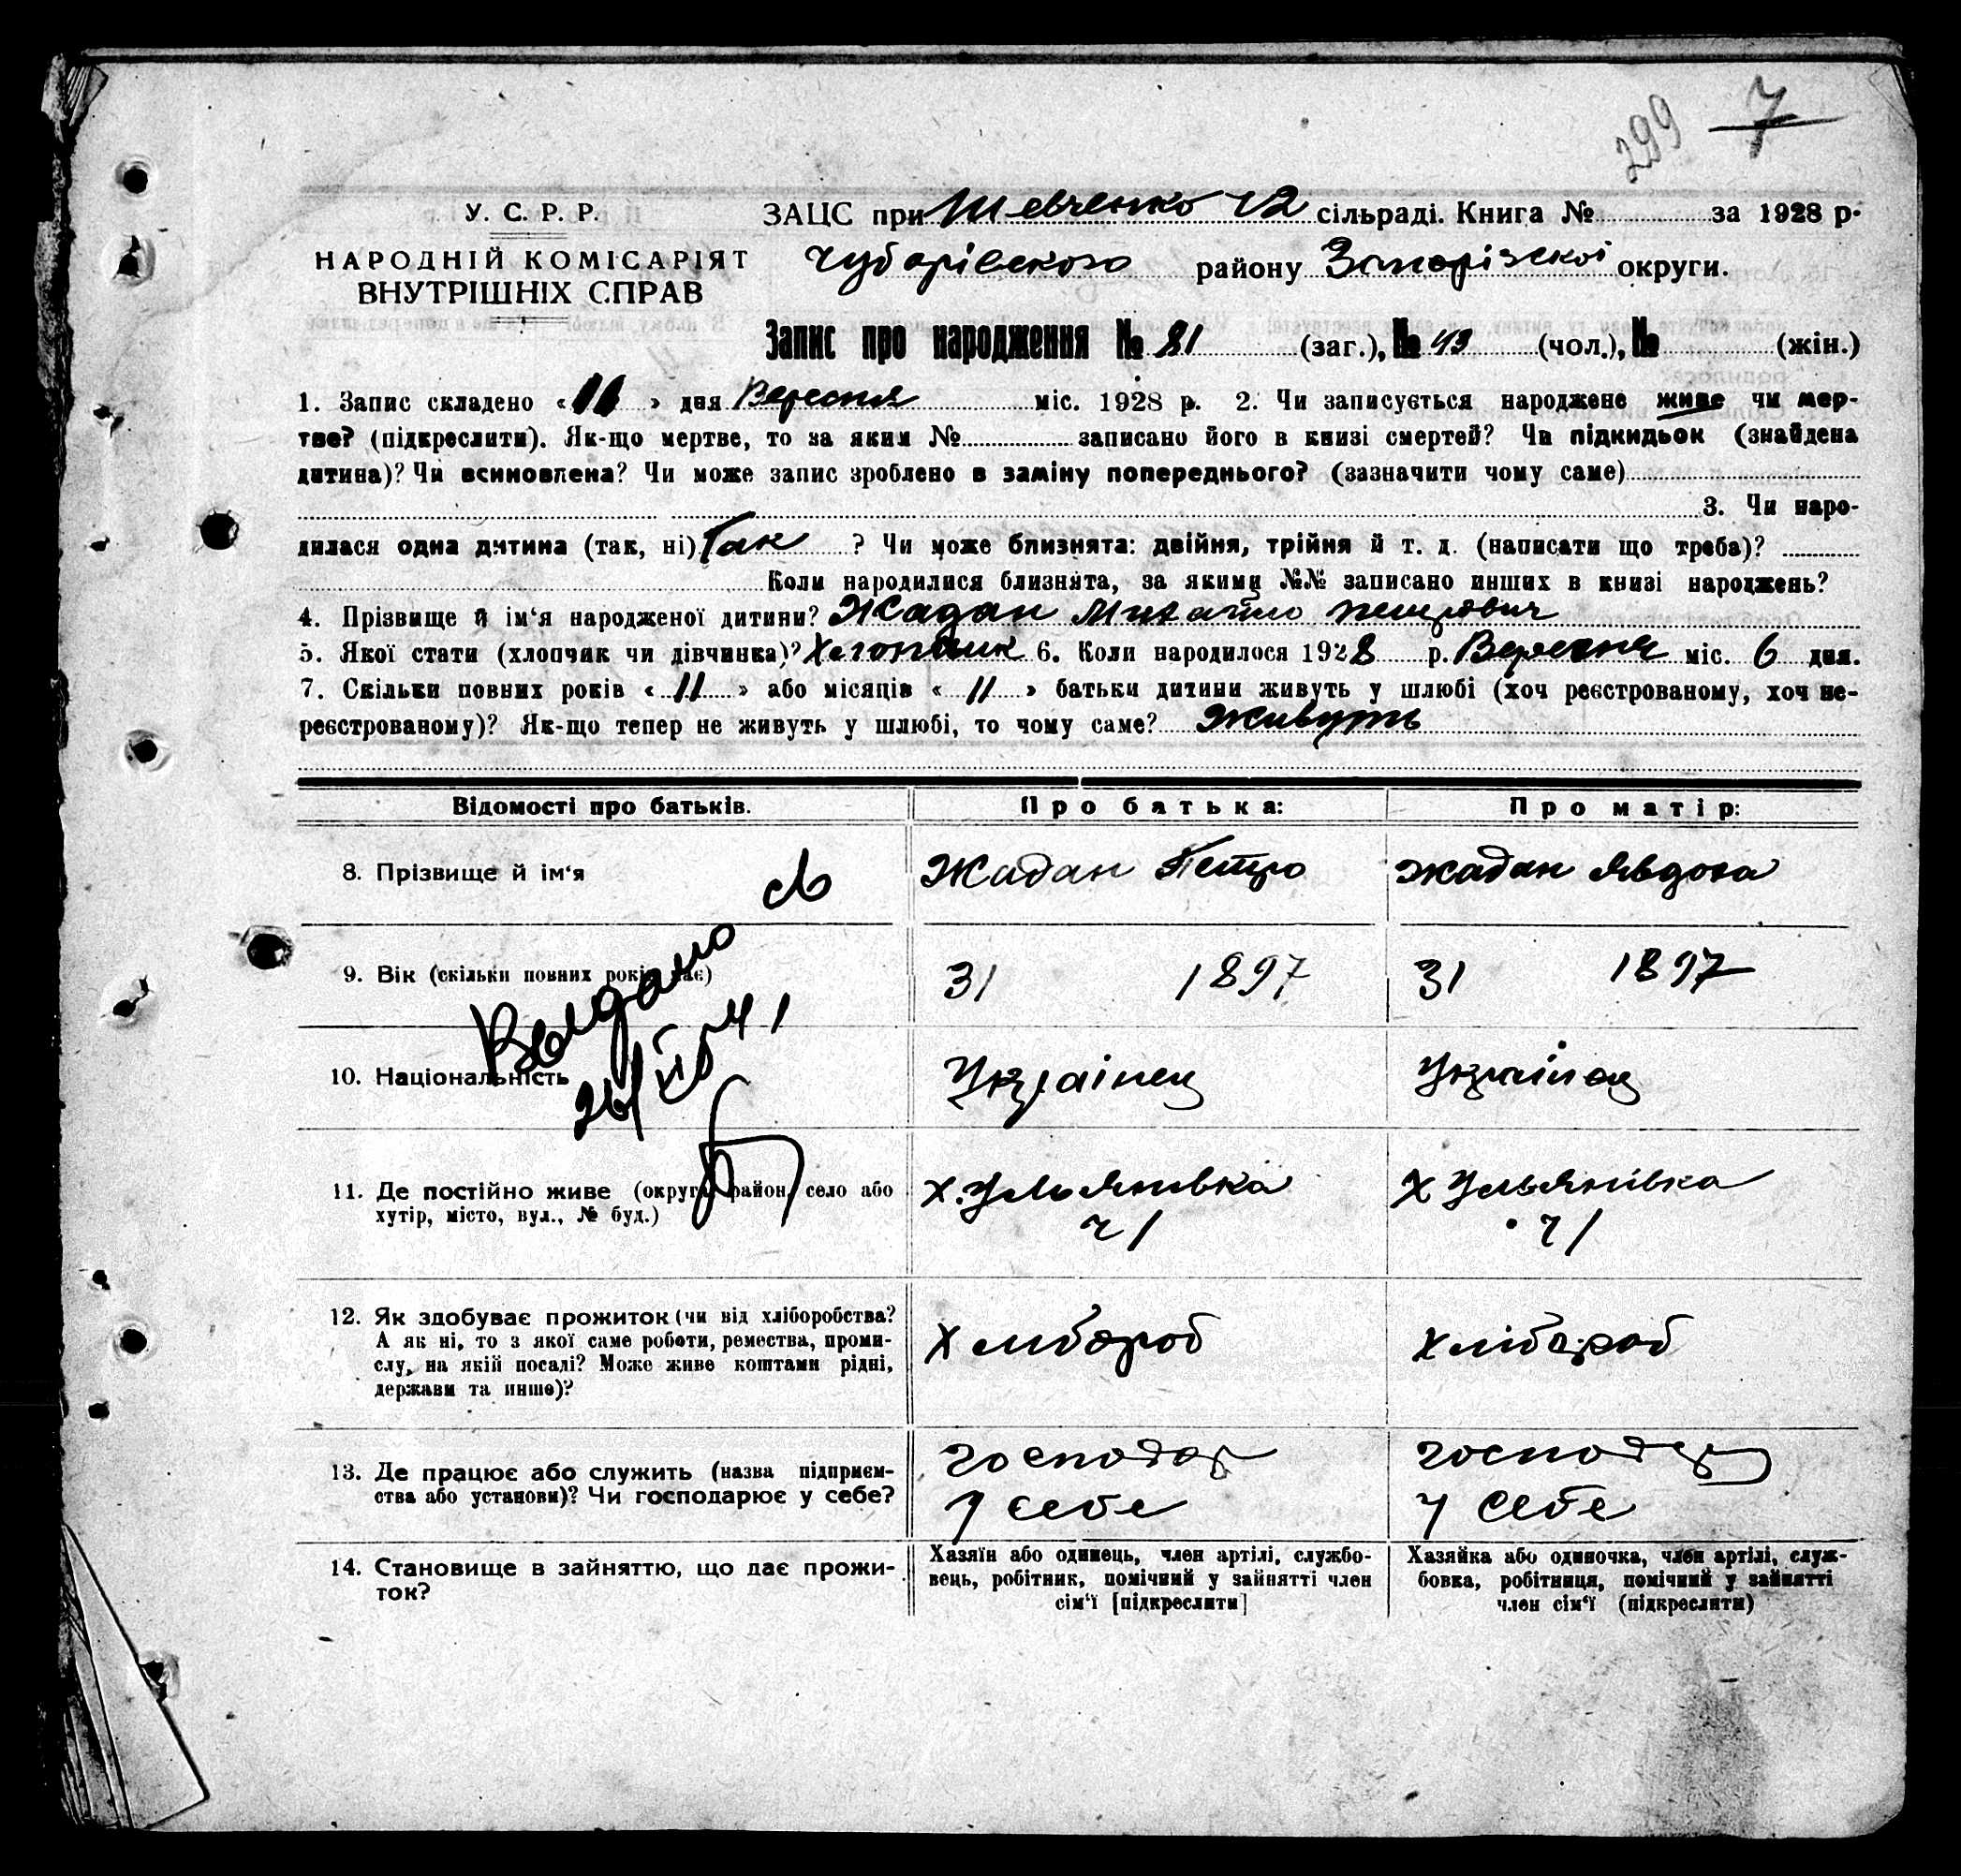 299 7
У. С. Р. Р.
НАРОДНІЙ КОМІСАРІЯТ
ВНУТРІШНІХ СПРАВ
ЗАЦС при Шевченко 12 сільраді. Книга № за 1928 р.
Чубарівского району Запорізскої округи.
Запис про народження № 81 (заг.), № 43 (чол.), № (жін.)
1. Запис складено « 11 » дня Вересня міс. 1928 р. 2. Чи записується народжене живе чи мер-
тве? (підкреслити). Як-що мертве, то за яким № записано його в книзі смертей? Чи підкидьок (знайдена
дитина)? Чи всиновлена? Чи може запис зроблено в заміну попереднього? (зазначити чому саме)
3. Чи наро-
дилася одна дитина (так, ні) Так ? Чи може близнята: двійня, трійня й т. д. (написати що треба)?
Коли народилися близнята, за якими №№ записано инших в книзі народжень?
4. Прізвище й ім‘я народженої дитини? Жадан Михайло петрович
5. Якої стати (хлопчик чи дівчинка)? Хлопчик 6. Коли народилося 1928 р. Вересня міс. 6 дня.
7. Скільки повних років « 11 » або місяців « 11 » батьки дитини живуть у шлюбі (хоч реєстрованому, хоч не-
реєстрованому)? Як-що тепер не живуть у шлюбі, то чому саме? Живуть
Відомості про батьків. Про батька: Про матір:
8. Прізвище й ім‘я Жадан Петро Жадан Явдоха
9. Вік (скільки повних років має) 31 1897 31 1897
Выдано
10. Національність Українец Українец
11. Де постійно живе (округа, район, село або
хутір, місто, вул., № буд.)
х. Ульянивка
ч 1
х Ульянівка
ч 1
12. Як здобуває прожиток (чи від хліборобства?
А як ні, то з якої саме роботи, ремества, проми-
слу, на якій посаді? Може живе коштами рідні,
держави та инше)?
Хлибороб
Хлібороб
13. Де працює або служить (назва підприєм-
ства або установи)? Чи господарює у себе?
господар
у себе
господар
у себе
14. Становище в зайняттю, що дає прожи-
ток?
Хазяїн або одинець, член артілі, службо-
вець, робітник, помічний у зайнятті член
сім‘ї [підкреслити]
Хазяйка або одиночка, член артілі, служ-
бовка, робітниця, помічний у зайнятті
член сім‘ї (підкреслити)